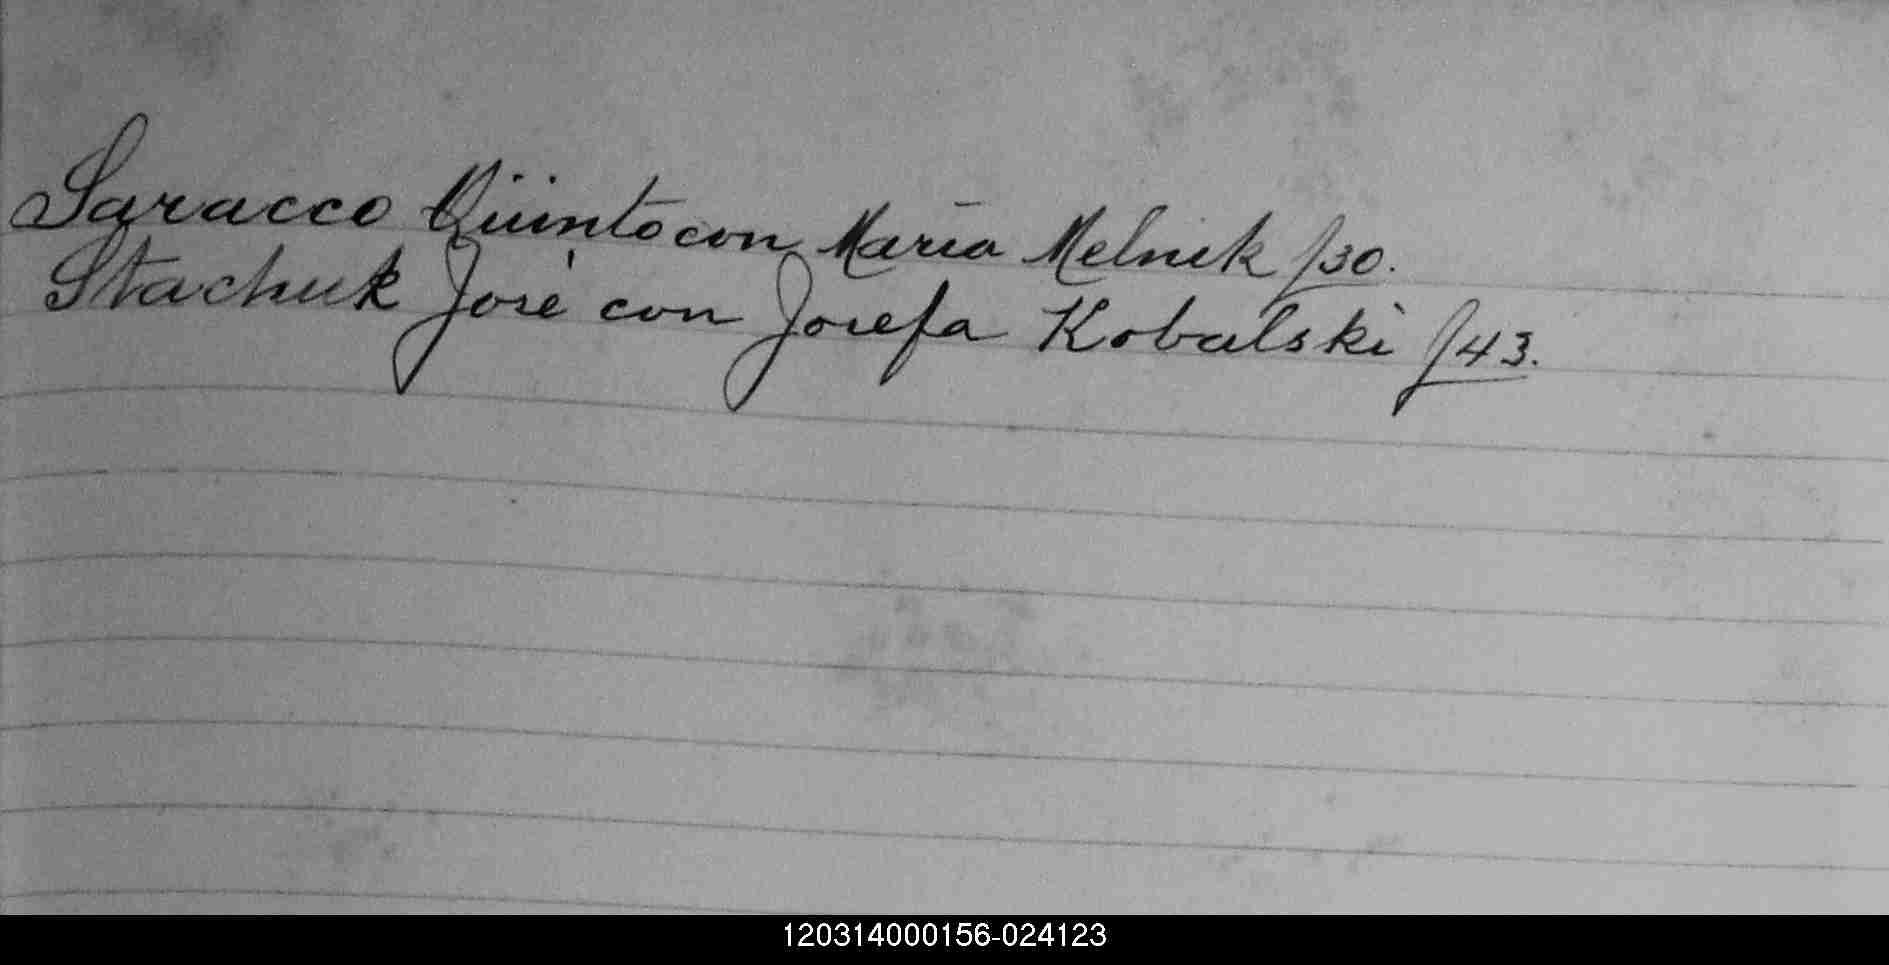 Saracco Quinto con María Melnik f30.
Stachuk José con Josefa Kobalski f43.
120314000156-024123